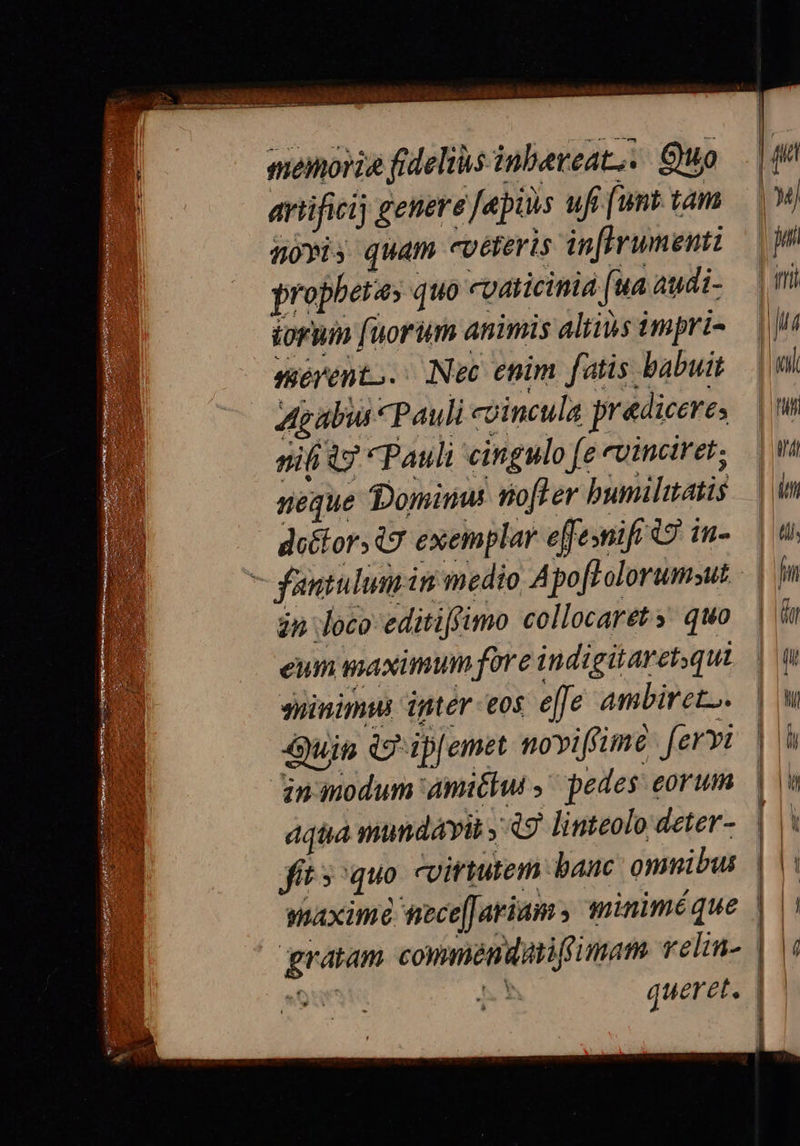 memoriæ fideliùs inhæreat. Quo
artificij genere sæpiùs usi sunt tam
novi, quam veteris instrumenti
prophetæ, quo vaticinia sua audi-
torum suorum animis altiùs impri-
merent. Nec enim satis habuit
Agabus Pauli vincula prædicere,
nisi & Pauli cingulo se vinciret;
neque Dominus noster humilitatis
doctor, & exemplar esse, nisi & in-
fantulum in medio Apostolorum, ut
in loco editissimo collocaret, quo
eum maximum fore indigitaret, qui
minimus inter eos esse ambiret.
Quin & ipsemet novissimè servi
in modum amictus, pedes eorum
aquâ mundavit, & linteolo deter-
sit, quo virtutem hanc omnibus
maximè necessariam, minimèque
gratam commendatissimam relin-
queret.